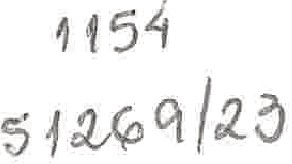 1154
51269/23